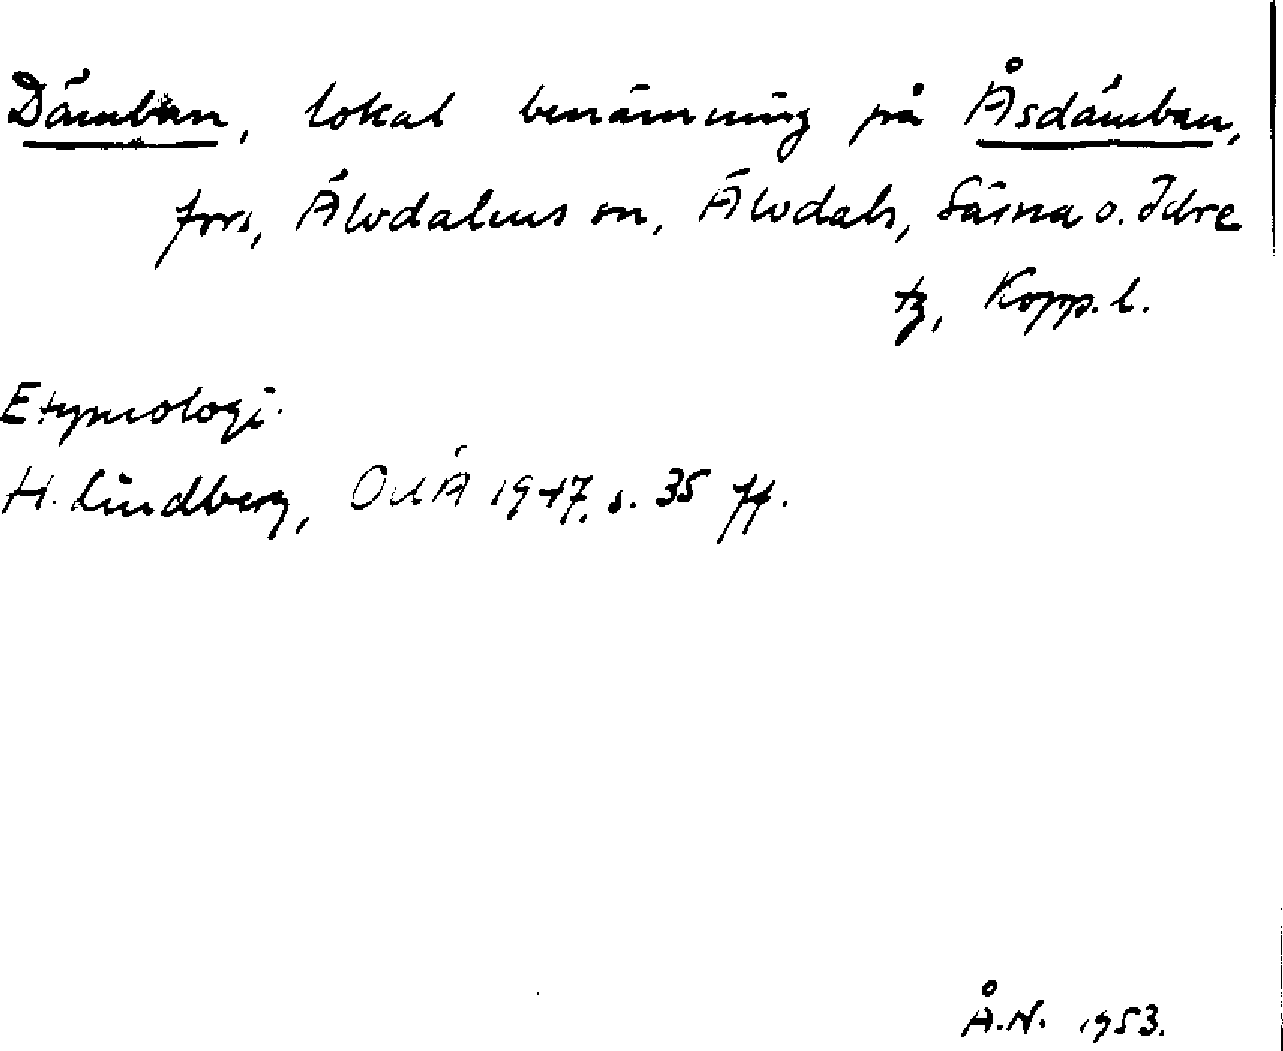 Dämban, lokal benämning på Åsdämban,
fors, Älvdalens sn, Älvdals, Särna o. Idre
tg, Kopp.l.
Etymologi.
H. Lindberg, OUÅ 1947, s. 35 ff.
Å.N. 1953.